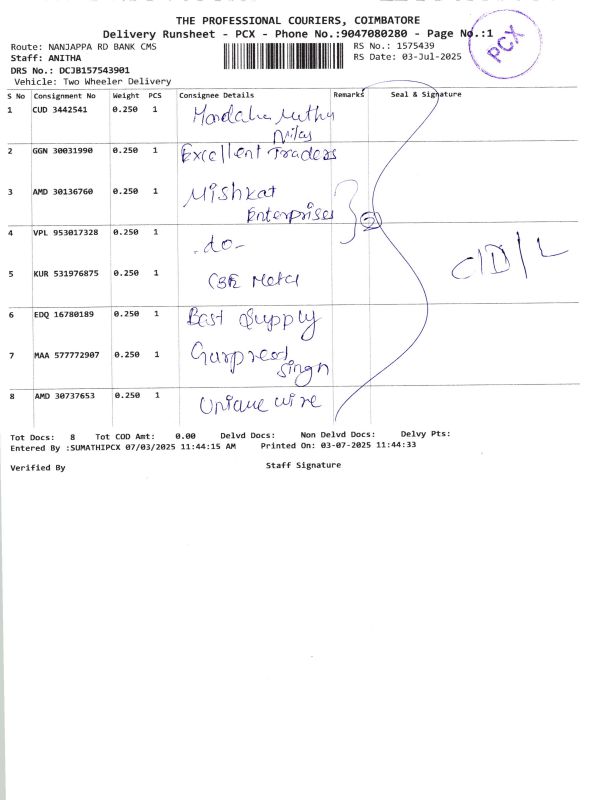 THE PROFESSIONAL COURIERS, COIMBATORE
Delivery Runsheet - PCX - Phone No.:9047080280 - Page No.:1
PCX
Route: NANJAPPA RD BANK CMS
RS No.: 1575439
Staff: ANITHA
RS Date: 03-Jul-2025
DRS No.: DCJB157543901
Vehicle: Two Wheeler Delivery
S No Consignment No Weight PCS Consignee Details Remarks Seal & Signature
1 CUD 3442541 0.250 1
2 GGN 30031990 0.250 1 Excellent Traders
3 AMD 30136760 0.250 1 Mishkat
Enterprises
4 VPL 953017328 0.250 1 -do-
5 KUR 531976875 0.250 1 CBE Metal
6 EDQ 16780189 0.250 1 Bast Supply
7 MAA 577772907 0.250 1 Gurpreet
Singh
8 AMD 30737653 0.250 1 Unique wire
Tot Docs: 8 Tot COD Amt: 0.00 Delvd Docs: Non Delvd Docs: Delvy Pts:
Entered By :SUMATHIPCX 07/03/2025 11:44:15 AM Printed On: 03-07-2025 11:44:33
Verified By Staff Signature